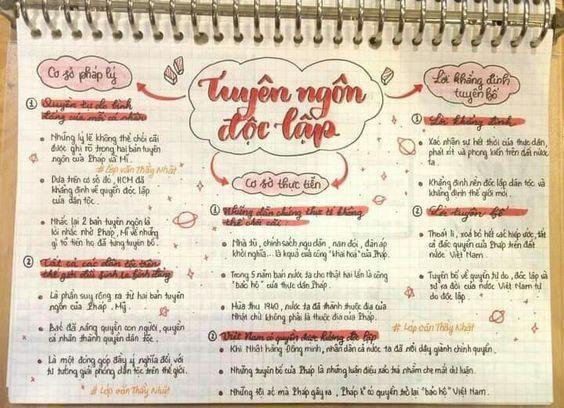 Tuyên ngôn
độc lập
Cơ sở pháp lý
① Quyền tự do bình
đẳng của mỗi cá nhân
Những lý lẽ không thể chối cãi
được ghi rõ trong hai bản tuyên
ngôn của Pháp và Mĩ.
# Lớp văn Thầy Nhật
Dựa trên cơ sở đó, HCM đã
khẳng định về quyền độc lập
của dân tộc.
Nhắc lại 2 bản tuyên ngôn là
lời nhắc nhở Pháp, Mĩ về những
gì tổ tiên họ đã từng tuyên bố.
② Tất cả các dân tộc trên
thế giới đều sinh ra bình đẳng
Là phần suy rộng ra từ hai bản tuyên
ngôn của Pháp, Mỹ.
Bác đã nâng quyền con người, quyền
cá nhân thành quyền dân tộc.
Là một đóng góp đầy ý nghĩa đối với
tư tưởng giải phóng dân tộc trên thế giới.
# Lớp văn Thầy Nhật
Cơ sở thực tiễn
① Những dẫn chứng thực tế không
thể chối cãi:
Nhà tù, chính sách ngu dân, nạn đói, đàn áp
khởi nghĩa... là kquả của công "khai hoá" của Pháp.
Trong 5 năm bán nước ta cho Nhật hai lần là công
"bảo hộ" của thực dân Pháp.
Mùa thu 1940, nước ta đã thành thuộc địa của
Nhật chứ không phải là thuộc địa của Pháp.
② Việt Nam có quyền được hưởng độc lập
Khi Nhật hàng Đồng minh, nhân dân cả nước ta đã nổi dậy giành chính quyền.
Những tuyên bố của Pháp là những luận điệu xảo trá nhằm che mắt dư luận.
Những tội ác mà Pháp gây ra, Pháp k có quyền trở lại "bảo hộ" Việt Nam.
Lời khẳng định
tuyên bố
① Lời khẳng định
Xác nhận sự hết thời của thực dân,
phát xít và phong kiến trên đất nước
ta.
Khẳng định nền độc lập dân tộc và
khẳng định thế giới mới.
② Lời tuyên bố
Thoát li, xoá bỏ hết các hiệp ước, tất
cả đặc quyền của Pháp trên đất
nước Việt Nam.
Tuyên bố về quyền tự do, độc lập và
sự ra đời của nước Việt Nam tự
do độc lập.
# Lớp văn Thầy Nhật